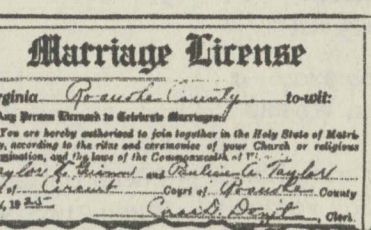 Marriage License
rginia Roanoke County to-wit:
Any Person Licensed to Celebrate Marriages:
You are hereby authorized to join together in the Holy State of Matri-
y, according to the rites and ceremonies of your Church or religious
mination, and the laws of the Commonwealth of
aylor and A. Taylor
of Circuit Court of Roanoke County
, 19
, Clerk